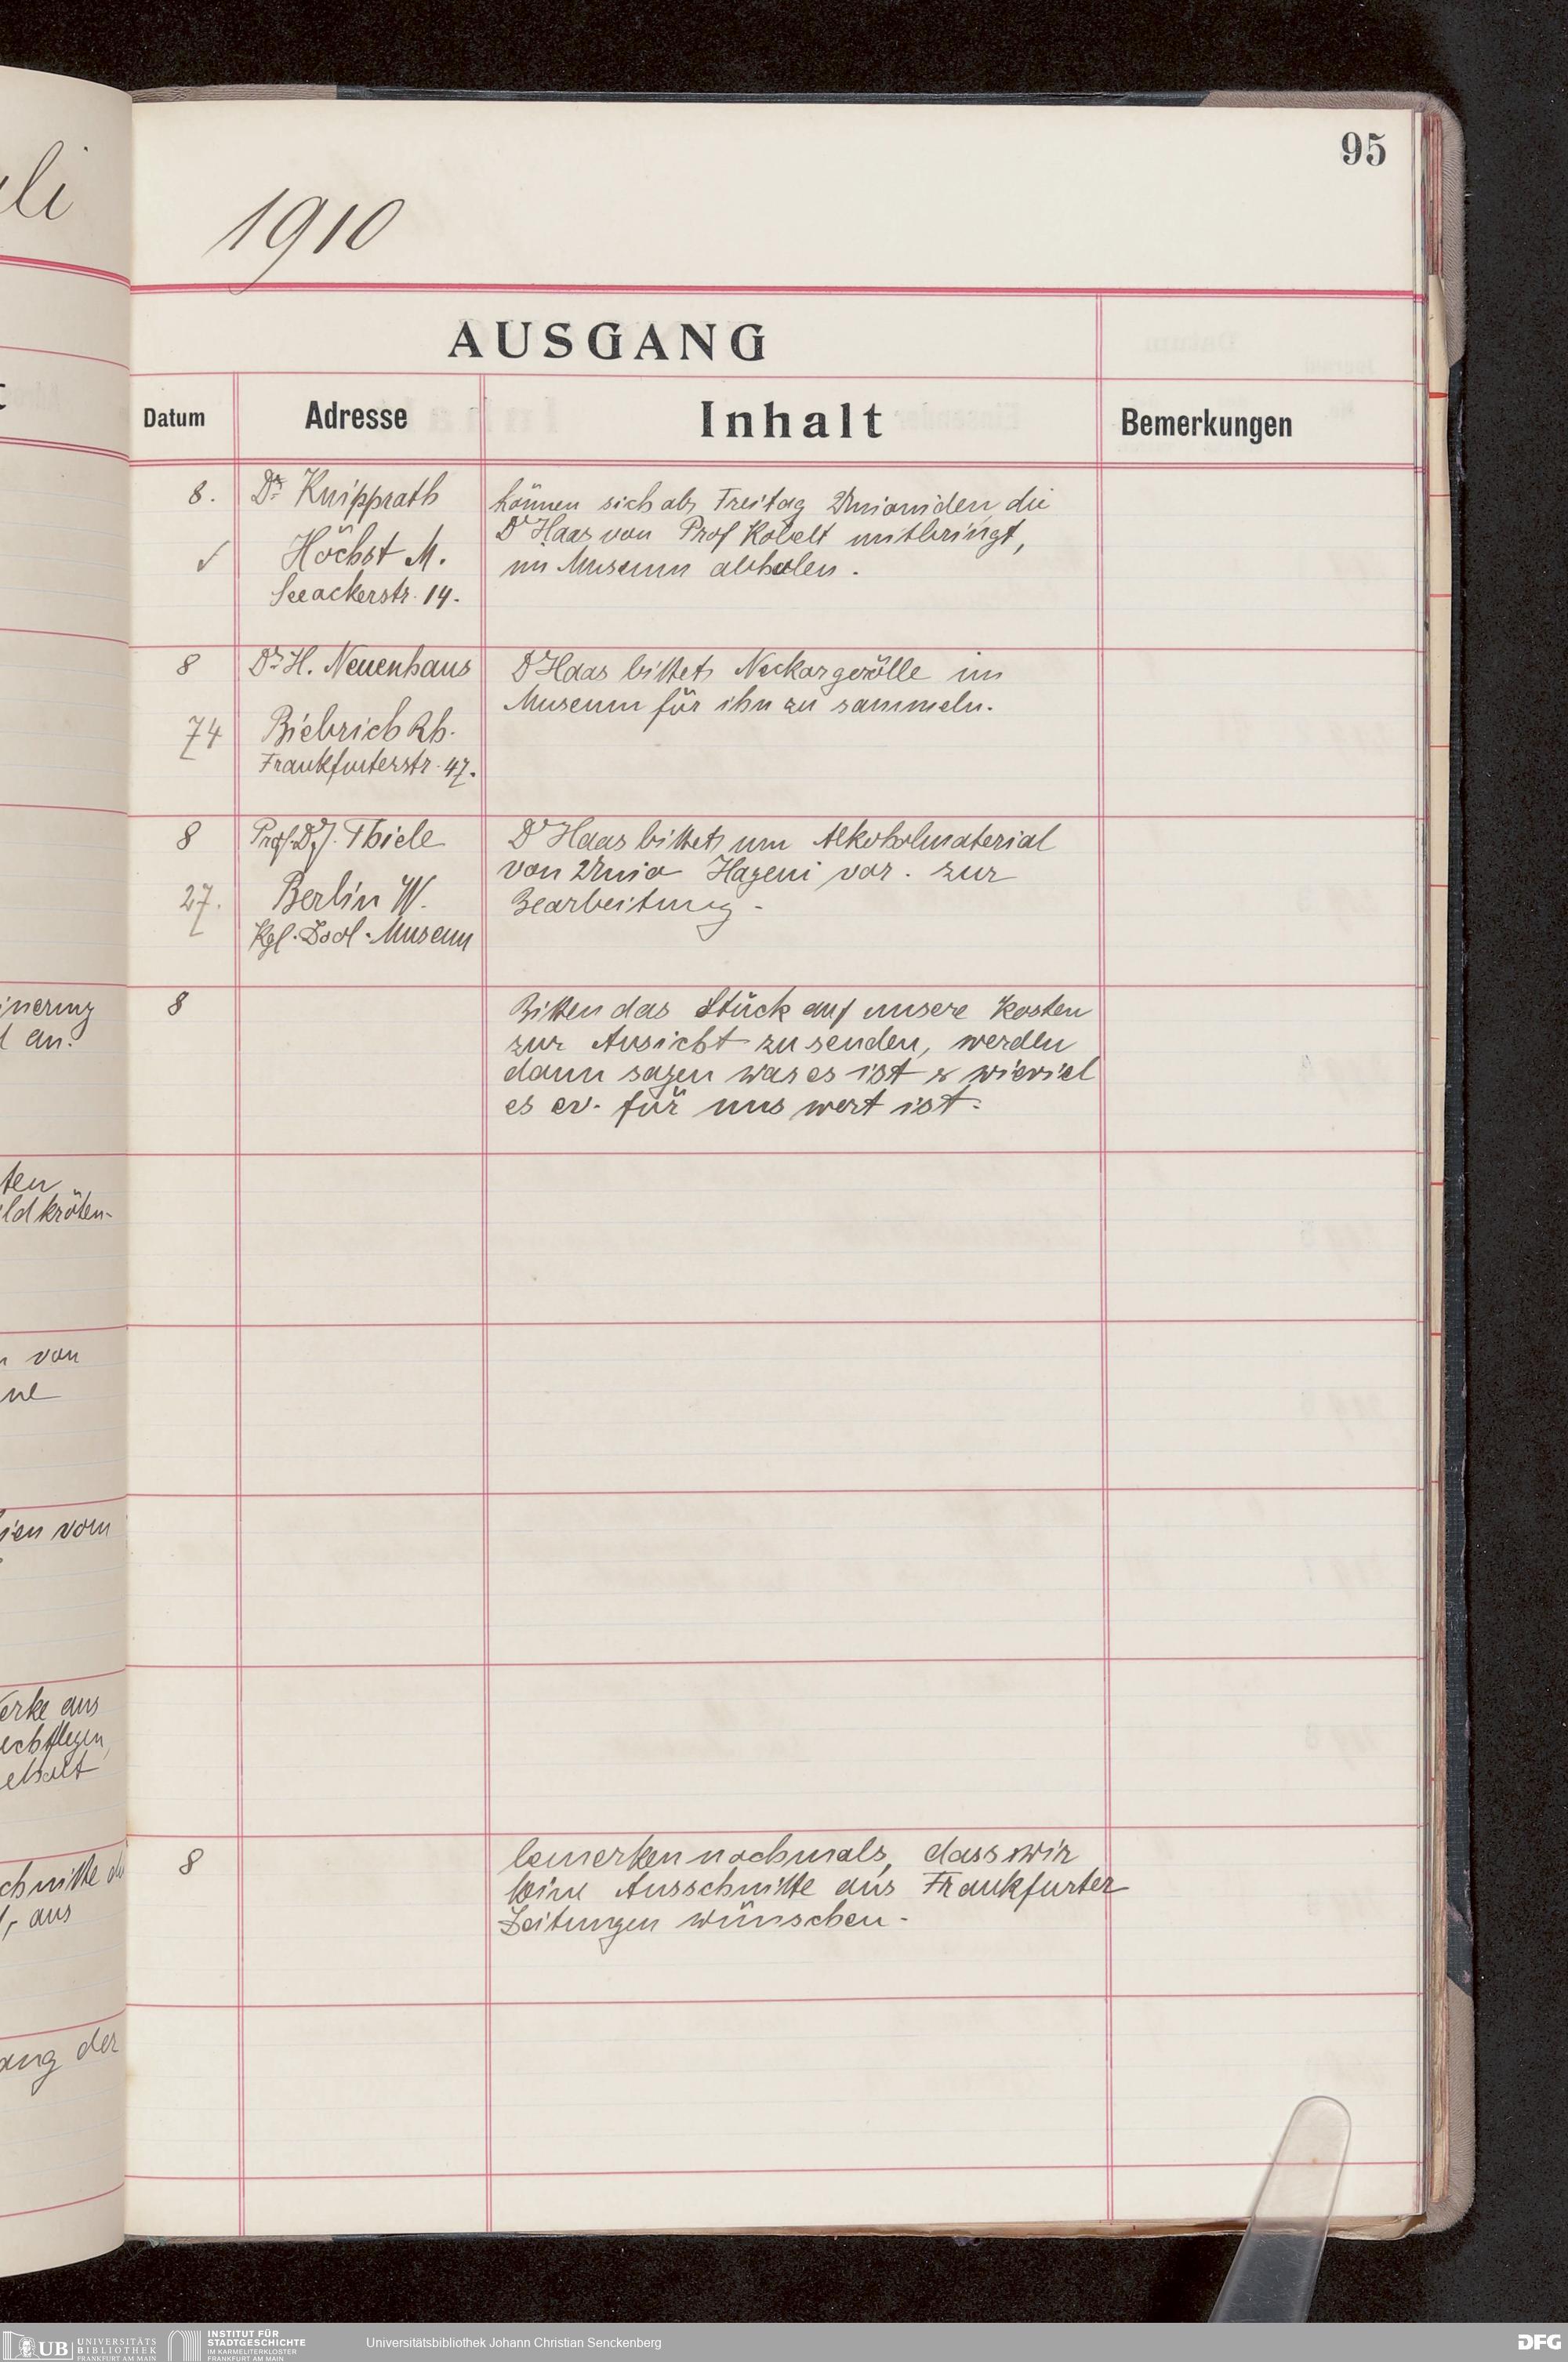 95
1910
AUSGANG
Datum
Adresse
Inhalt
Bemerkungen
8.
Dr. Knipprath
Höchst M.
Seeackerstr. 14.
können sich ab Freitag Unioniden, die
Dr Haas von Prof Kobelt mitbringt,
im Museum abholen.
8
Dr. H. Neuenhaus
74
Biebrich Rh.
Frankfurterstr. 47.
Dr Haas bittet, Neckargerölle im
Museum für ihn zu sammeln.
8
Prof. Dr J. Thiele
27.
Berlin W.
Kgl. Zool. Museum
Dr Haas bittet, um Alkoholmaterial
von Unio Hageni var. zur
Bearbeitung.
8
Bitten das Stück auf unsere Kosten
zur Ansicht zu senden, werden
dann sagen was es ist & wieviel
es ev. für uns wert ist.
8
bemerken nochmals, dass wir
keine Ausschnitte aus Frankfurter
Zeitungen wünschen.
an.
ten
ldkröten-
von
vom
erke aus
aus
der
UB UNIVERSITÄTS
BIBLIOTHEK
FRANKFURT AM MAIN
INSTITUT FÜR
STADTGESCHICHTE
IM KARMELITERKLOSTER
FRANKFURT AM MAIN
Universitätsbibliothek Johann Christian Senckenberg
DFG